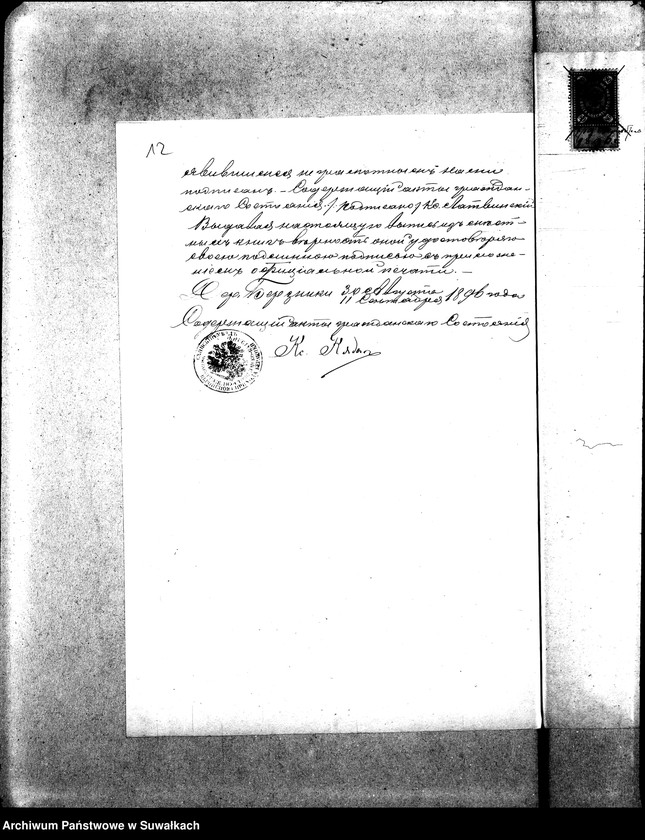 12
явившимся неграмотным нами
подписан. – Содержащій акты граждан-
скаго Состоянія /подписано/ Кс. Латвинский
Выдавая настоящую выпись съ
книгъ вѣрность оной удостовѣряю
своею подписью съ приложе-
ніемъ оффиціальной печати. –
Д. Бержники 30 Августа
11 Сентября 1896 года
Содержащій акты гражданскаго Состоянія
Кс.
Archiwum Państwowe w Suwałkach